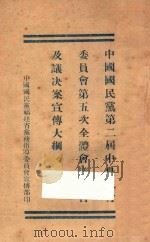 中國國民黨第二屆中
委員會第五次全體會
及議決案宣傳大綱
中國國民黨福建省黨務指導委員會宣傳部印